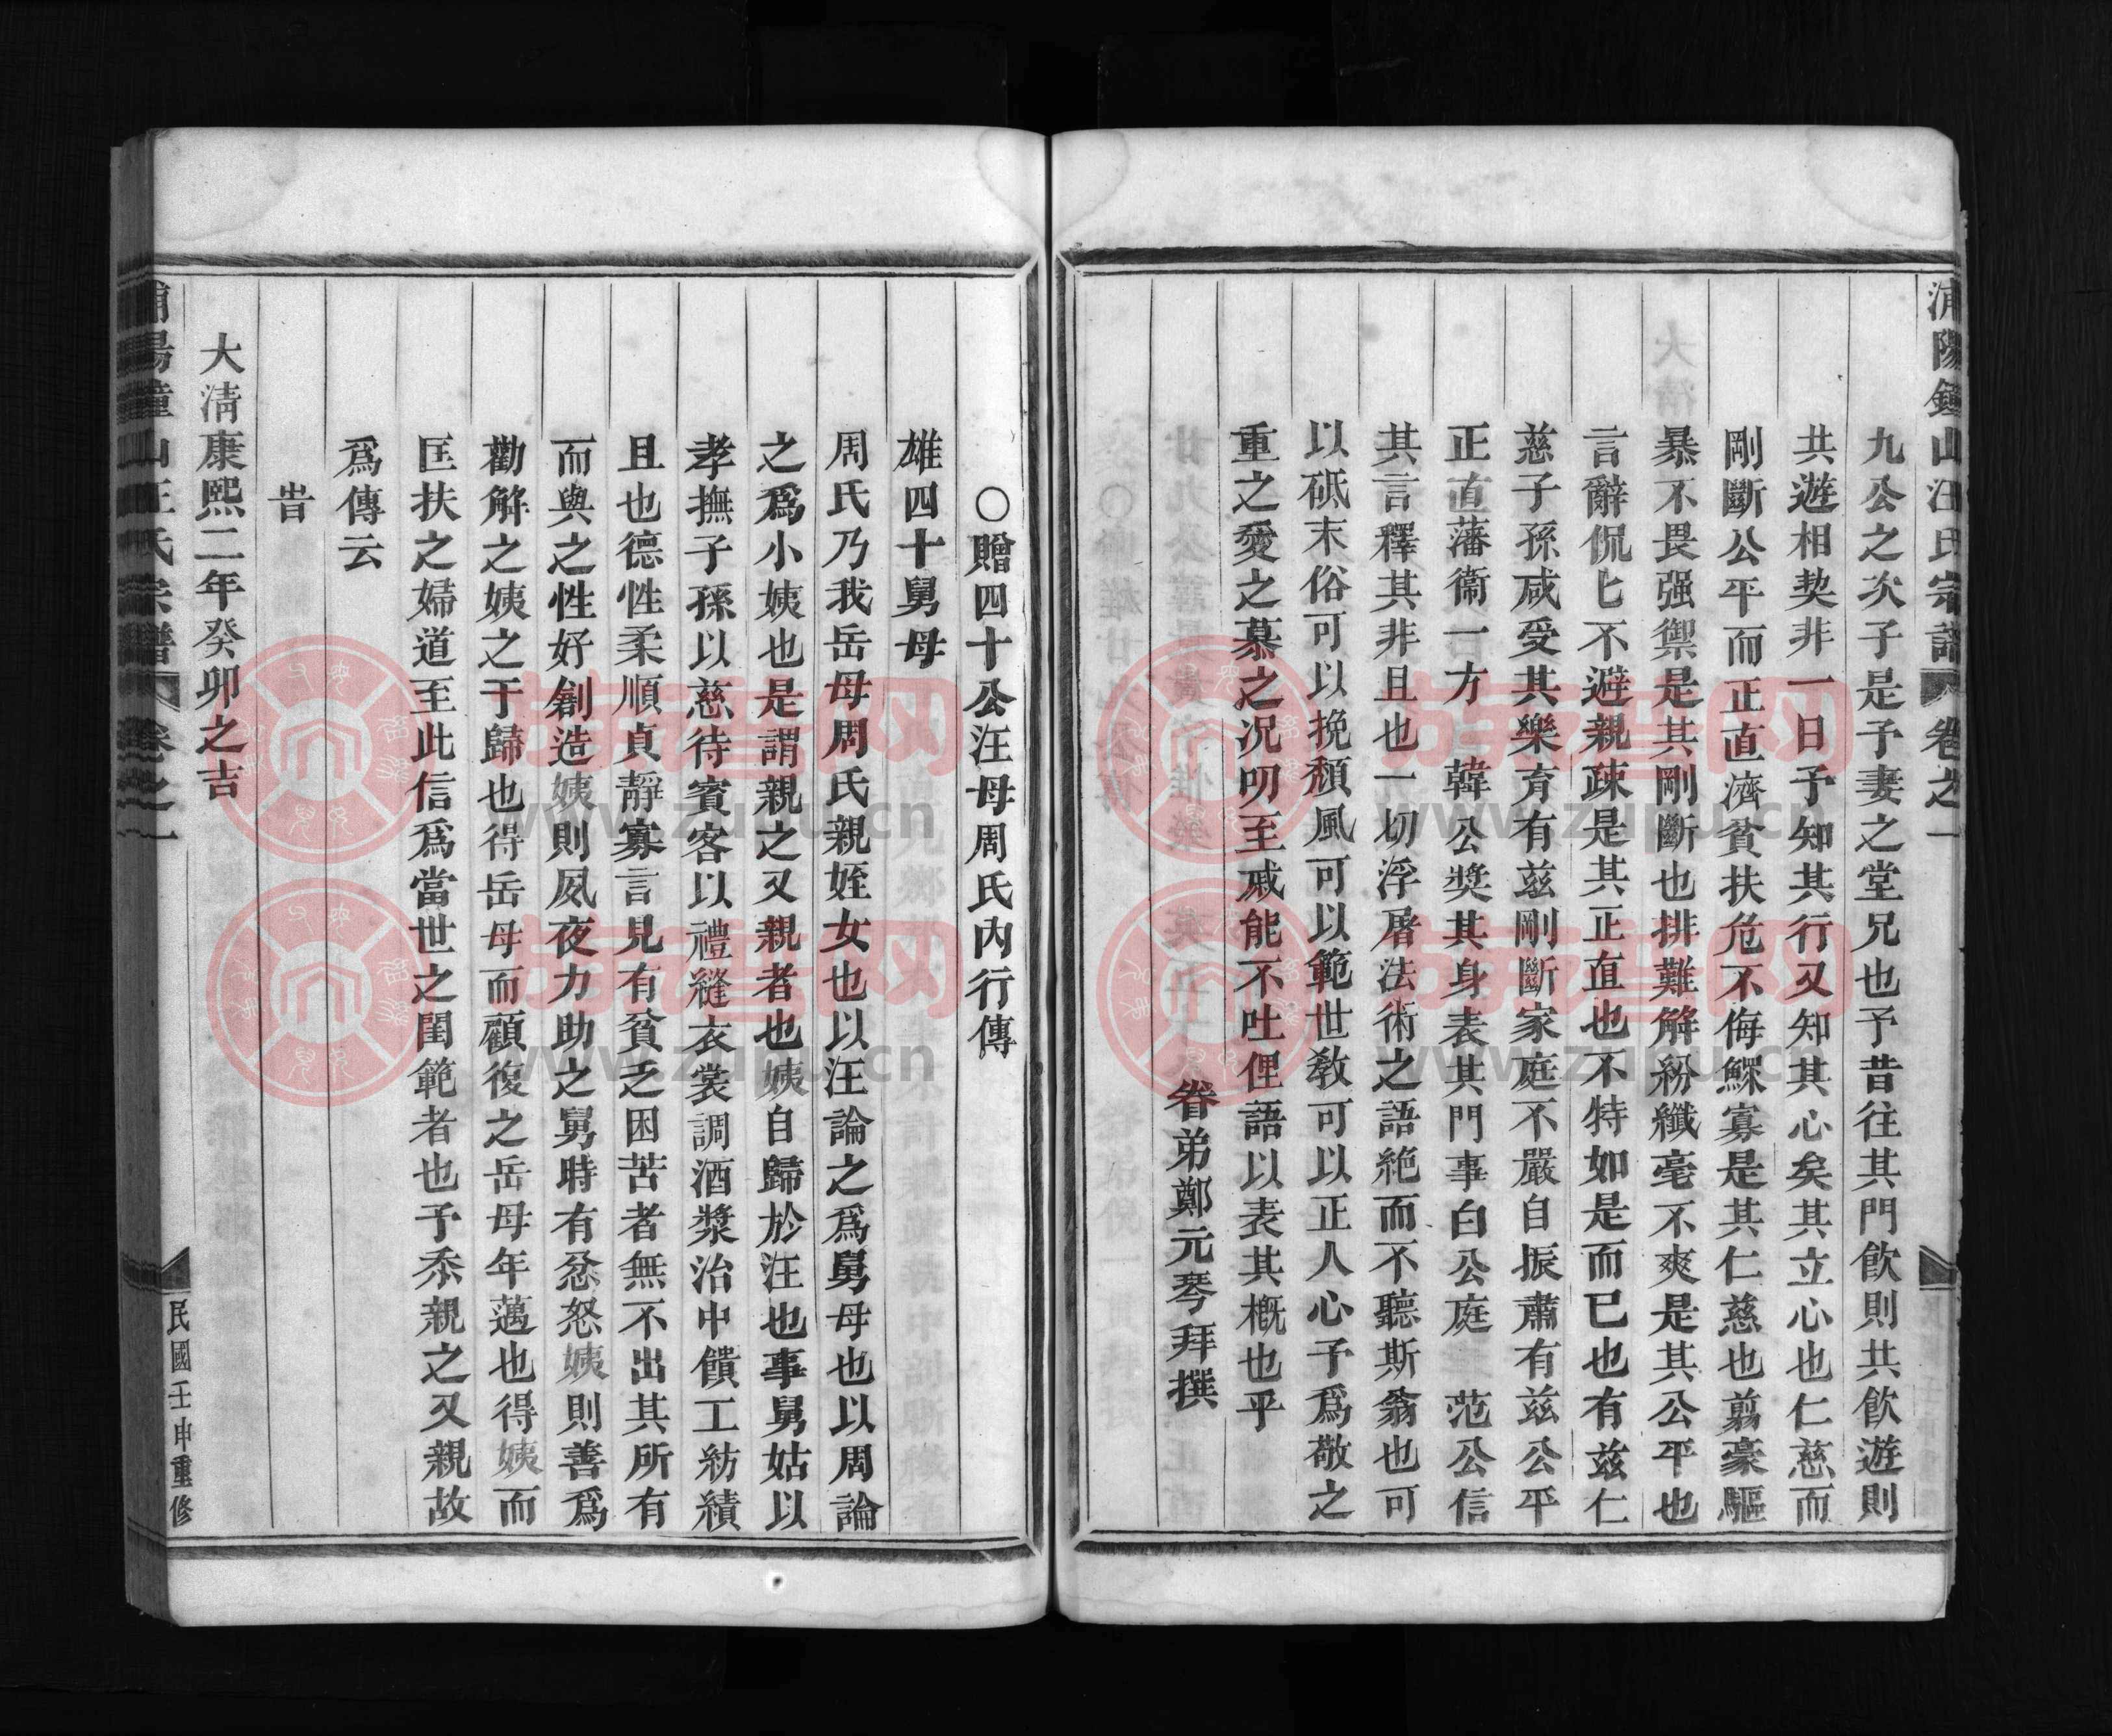 浦陽鍾山汪氏宗譜 卷之一
九公之次子是予妻之堂兄也予昔往其門飲則共飲遊則
共遊相契非一日予知其行又知其心矣其立心也仁慈而
剛斷公平而正直濟貧扶危不侮鰥寡是其仁慈也翦豪驅
暴不畏强禦是其剛斷也排難解紛纖毫不爽是其公平也
言辭侃匕不避親疎是其正直也不特如是而已也有兹仁
慈子孫咸受其樂育有兹剛斷家庭不嚴自振肅有兹公平
正直藩衞一方 韓公奬其身表其門事白公庭 范公信
其言釋其非且也一切浮屠法術之語絶而不聽斯翁也可
以砥末俗可以挽頽風可以範世敎可以正人心予爲敬之
重之愛之慕之況叨至戚能不吐俚語以表其槪也乎
眷弟鄭元琴拜撰
〇贈四十公汪母周氏內行傳
雄四十舅母
周氏乃我岳母周氏親姪女也以汪論之爲舅母也以周論
之爲小姨也是謂親之又親者也姨自歸於汪也事舅姑以
孝撫子孫以慈待賓客以禮縫衣裳調酒漿治中饋工紡績
且也德性柔順貞靜寡言見有貧乏困苦者無不出其所有
而與之性好創造姨則夙夜力助之舅時有忿怒姨則善爲
勸解之姨之于歸也得岳母而顧復之岳母年邁也得姨而
匡扶之婦道至此信爲當世之閨範者也予忝親之又親故
爲傳云
旹
大淸康熙二年癸卯之吉
浦陽鍾山汪氏宗譜 卷之一
民國壬申重修
族譜网
www.zupu.cn
族譜网
www.zupu.cn
族譜网
www.zupu.cn
族譜网
www.zupu.cn